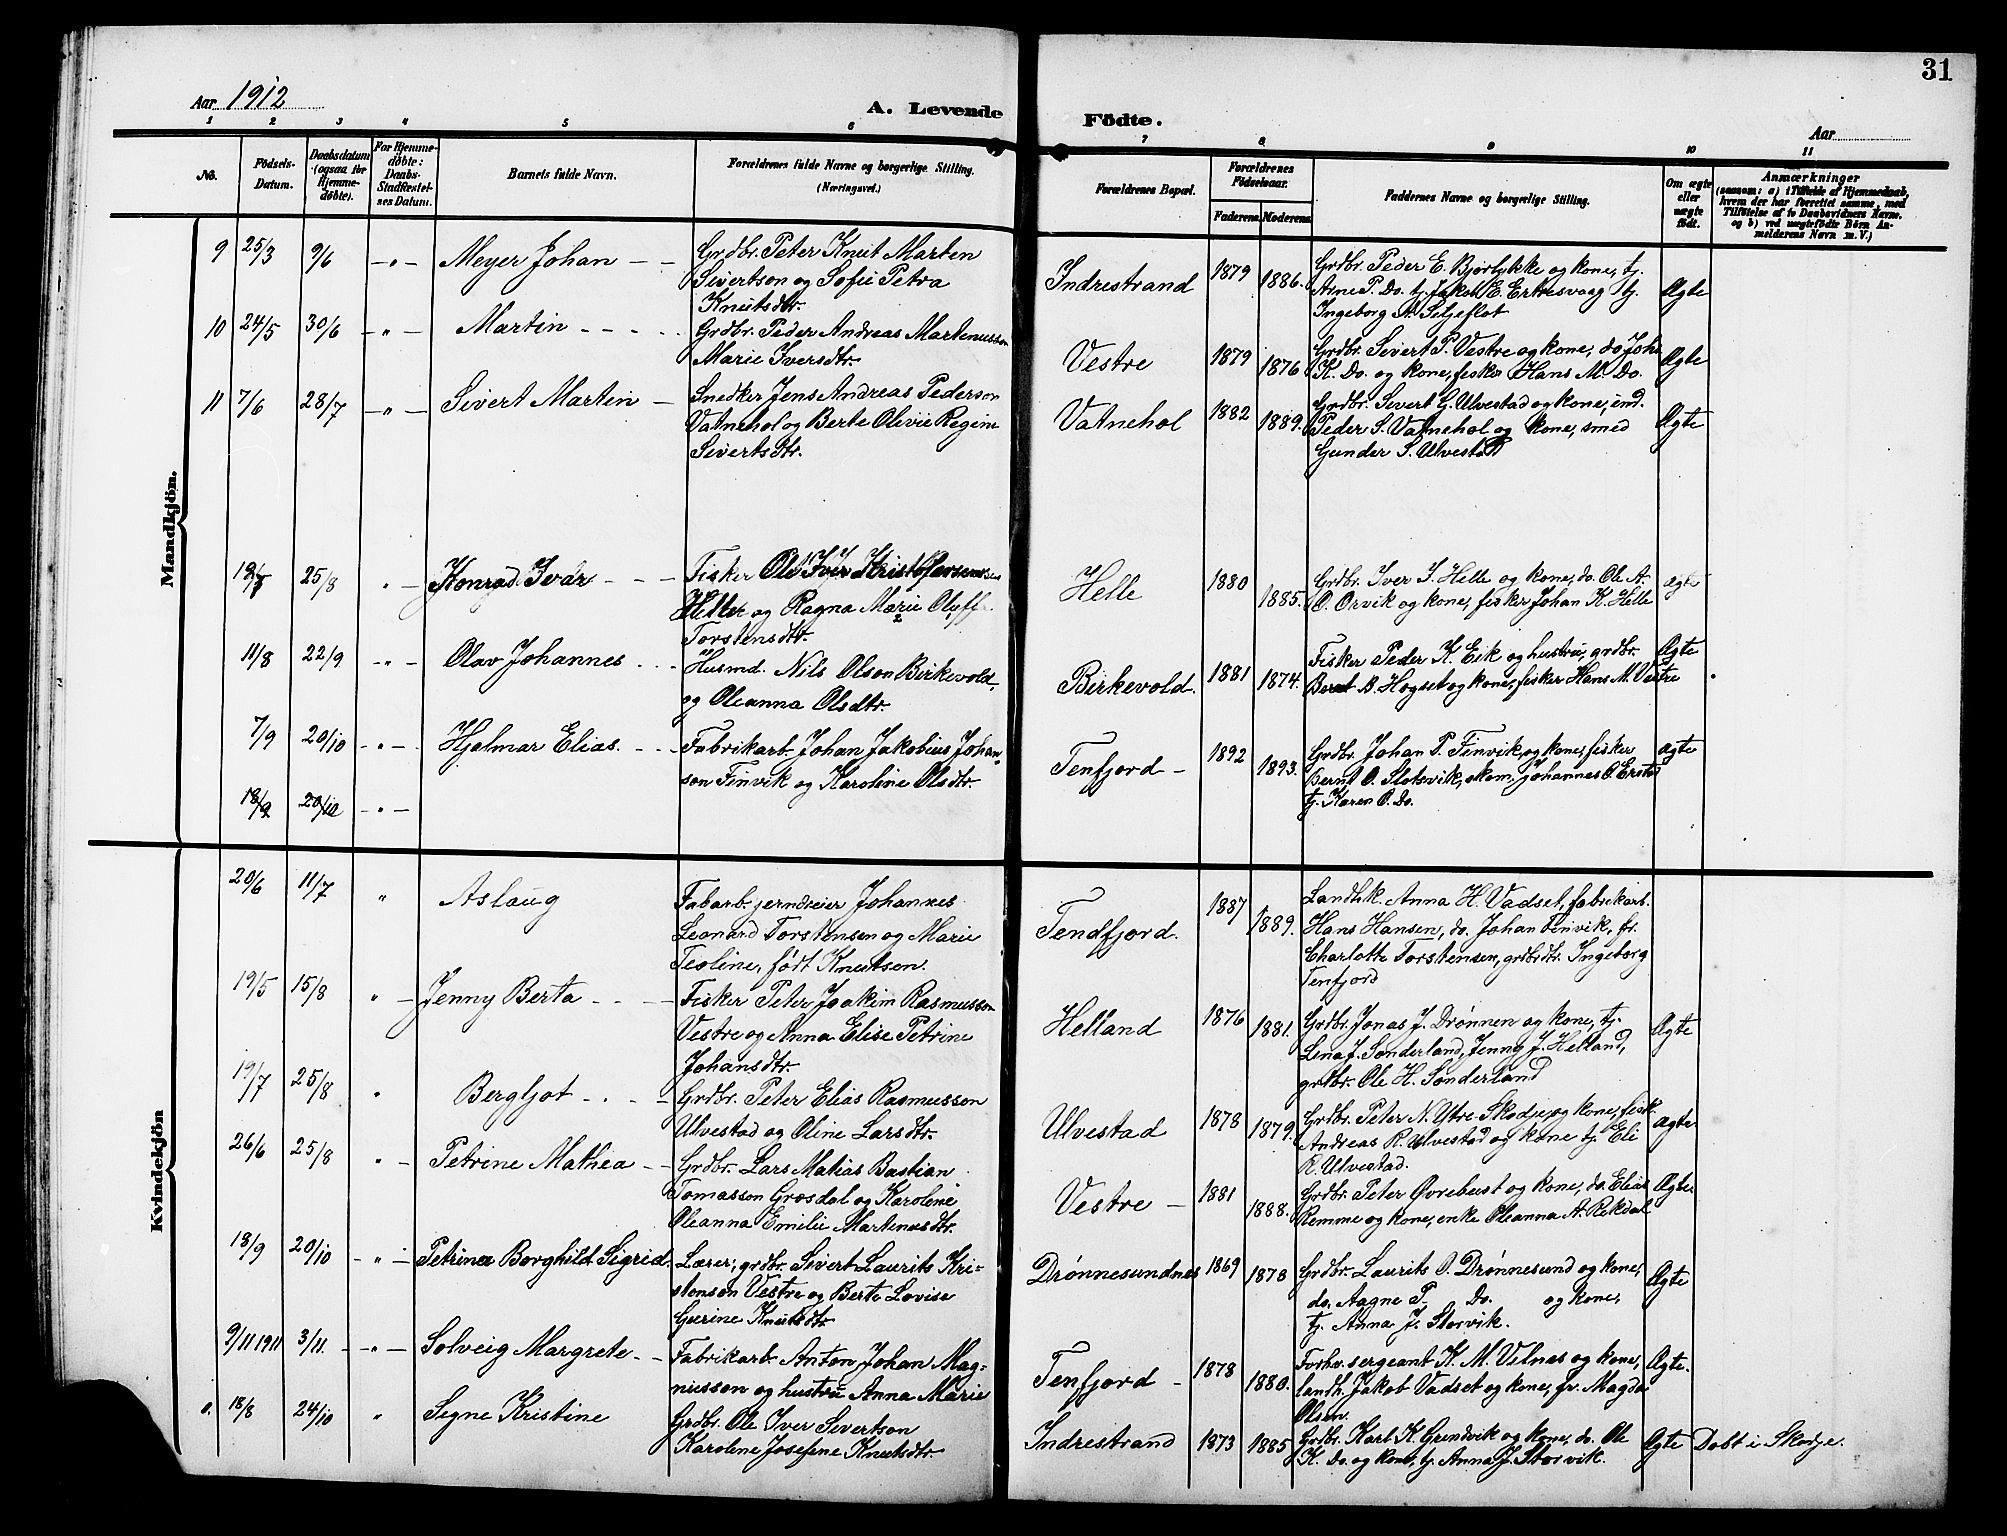 31
Aar 1912
A. Levende Födte.
Aar
1 2 3 4 5 6 7 8 9 10 11
No.
Födsels-Datum.
Daabsdatum (ogsaa for Hjemmedøbte).
For Hjemmedøbte: Daabs-Stadfæstelses Datum.
Barnets fulde Navn.
Forældrenes fulde Navne og borgerlige Stilling.
(Næringsvei.)
Forældrenes Bopæl.
Forældrenes Fødselsaar.
Faderens. Moderens.
Faddernes Navne og borgerlige Stilling.
Om ægte eller uægte født.
Anmærkninger
(saasom: a) i Tilfælde af Hjemmedaab,
hvem der har forrettet samme, med
Tilføielse af to Daabsvidners Navne,
og b) ved uægtefødte Børn Anmelderens Navn m. V.)
Mandkjön.
9 25/3 9/6 -„- Meyer Johan - - Grdbr. Peter Knut Marten
Sivertson og Sofie Petra
Knutsdtr.
Indrestrand 1879 1886. Grdbr. Peder E. Bjørlykke og kone, tj.
Arne P. Do. tj. Jakob E. Ertresvaag tj.
Ingeborg A. Seljeflot Ægte
10 24/5 30/6 -„- Martin - - - - Grdbr. Peder Andreas Martenusson
Marie Iversdtr.
Vestre 1879 1876 Grdbr. Sivert P. Vestre og kone, do Joh.
K. Do. og kone, fisker Hans M. Do. Ægte
11 7/6 28/7 -„- Sivert Martin - Snedker Jens Andreas Pederson
Vatnehol og Berte Olivie Regine
Sivertsdtr.
Vatnehol 1882 1889. Grdbr. Sivert G. Ulvestad og kone, ind.
Peder S. Vatnehol og kone, smed
Gunder S. Ulvestad Ægte
25/8 „ - Konrad Ivar - - - Fisker Ole Iver Kristofersen
Helle og Ragna Marie Oluff.
Torstensdtr.
Helle 1880 1885. Grdbr. Iver I. Helle og kone, do. Ole A.
O. Orvik og kone, fisker Johan K. Helle ægte
11/8 22/9 -„- Olav Johannes - - Husmd. Nils Olson Birkevold,
og Oleanna Olsdtr.
Birkevold. 1881 1874. Fisker Peder K. Eik og hustru, grdbr.
Bernt B. Hogset og kone, fisker Hans M. Vestre Ægte
7/9 20/10 -„- Hjalmar Elias. - - Fabrikarb. Johan Jakobius Johan-
son Finvik og Karoline Olsdtr.
Tenfjord - 1892 1893. Grdbr. Johan P. Finvik og kone, fisker
Bernt O. Slotsvik, skom. Johannes O. Erstad
tj. Karen O. Do. ægte
18/9 20/10 -„-
Kvindekjön
20/6 11/7 „ Aslaug Fabarb. jerndreier Johannes
Leonard Torstensen og Marie
Teoline, født Knutsen.
Tendfjord. 1887 1889. Landh.k. Anna H. Vadset, fabrikarb.
Hans Hansen, do. Johan Finvik, fr.
Charlotte Torstensen, grdbrdtr. Ingeborg
Tenfjord
19/5 15/8 „ - Jenny Berta - - - Fisker Peter Joakim Rasmusson
Vestre og Anna Elise Petrine
Johansdtr.
Helland 1876 1881. Grdbr. Jonas J. Drønnen og kone, tj.
Lina J. Sonderland, Jenny J. Helland,
grdbr. Ole H. Sonderland Ægte
19/7 25/8 „ Bergljot - - - Grdbr. Peter Elias Rasmusson
Ulvestad og Oline Larsdtr.
Ulvestad 1878 1879. Grdbr. Peter N. Ytre-Skodje og kone, fisk.
Andreas R. Ulvestad og kone tj. Eli
R. Ulvestad. ægte
26/6 25/8 „ - Petrine Mathea - - Grdbr. Lars Matias Bastian
Tomasson Grosdal og Karoline
Oleanna Emelie Martenusdtr.
Vestre - 1881 1888. Grdbr. Peter Øvrebust og kone, do. Elias
Remme og kone, enke Oleanna A. Rekdal Ægte.
18/9 20/10 -„- Petrina Borghild Sigrid. Lærer, grdbr. Sivert Laurits Kri-
stenson Vestre og Berte Lovise
Gurine Knutsdtr.
Drønnesundnes 1869 1878 Grdbr. Laurits O. Drønnesund og kone,
do. Aagne P. Do. og kone,
tj. Anna J. Storvik. Ægte
9/11 1911 3/11. -„- Solveig Margrete - - Fabrikarb. Anton Johan Mag-
nusson og hustru Anna Marie
Tenfjord - 1878 1880. Forhv. sergeant K. M. Velnæs og kone,
landh. Jakob Vadset og kone, fr. Magda
Olsen. Ægte.
18/8 24/10 „ Segne Kristine Grdbr. Ole Iver Sivertson
Karolene Josefene Knutsdtr.
Indrestrand 1873 1885 Grdbr. Karl K. Grindvik og kone, do. Ole
K. Do. og kone, tj. Anna J. Storvik. Ægte Døbt i Skodje.